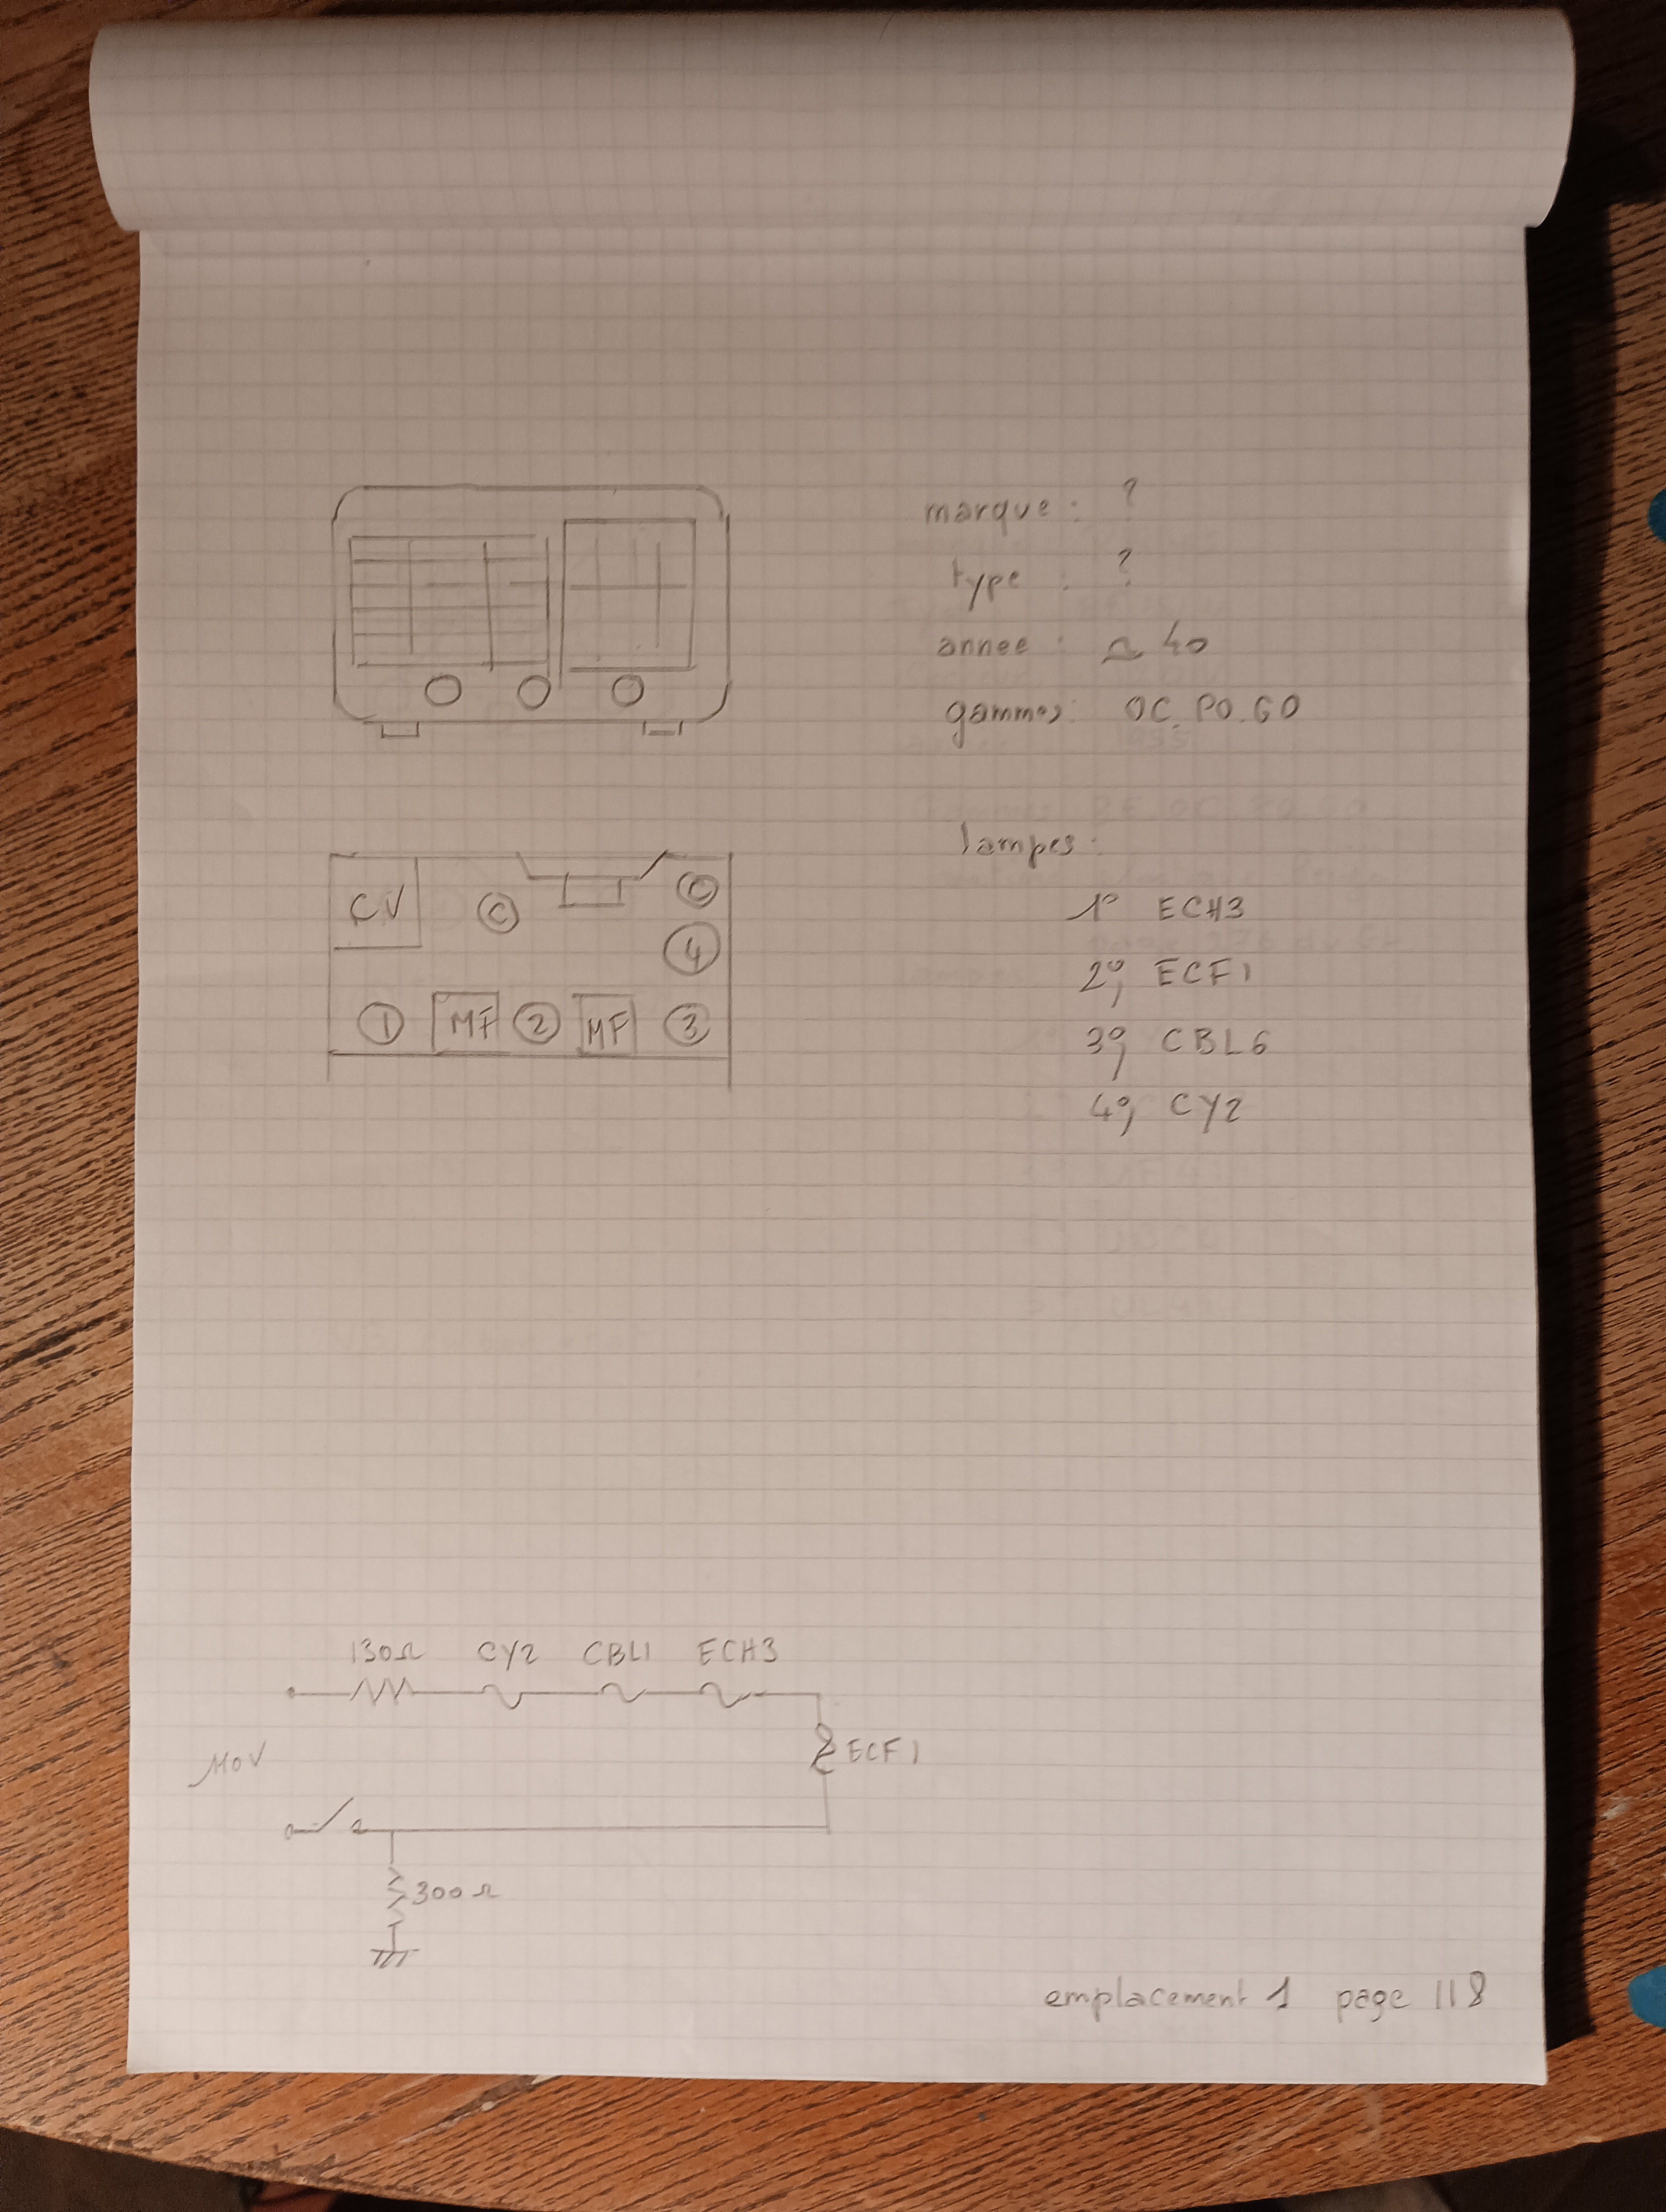 marque : ?
type : ?
annee : ≃ 40
gammes: OC. PO. GO
CV C C
4
1 MF 2 MF 3
lampes :
1° ECH3
2°, ECF1
3°, CBL6
4°, CY2
130Ω CY2 CBL1 ECH3
110V ECF1
300Ω
emplacement 1 page 118